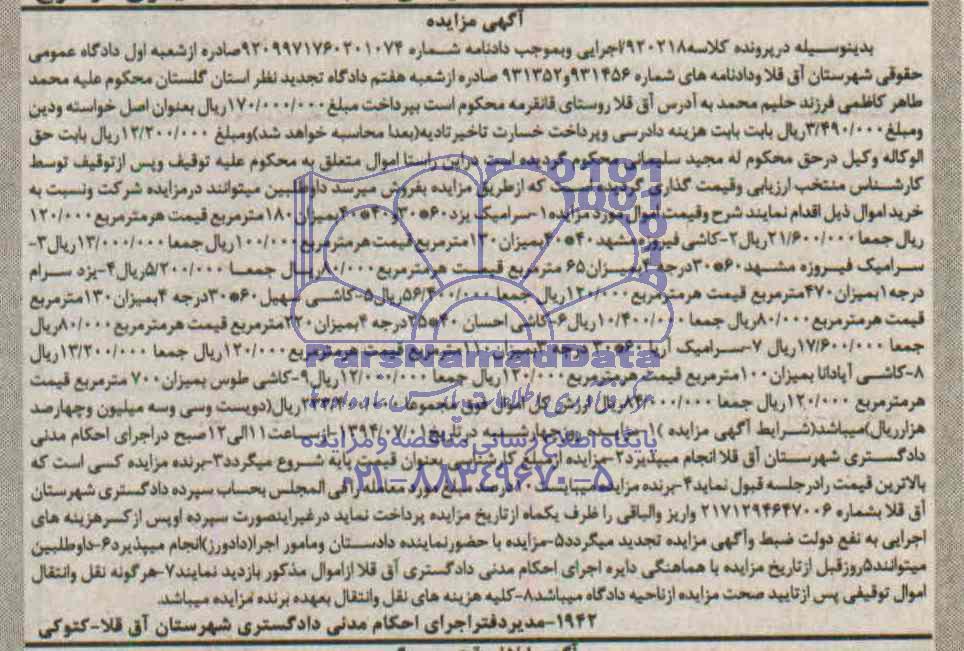 آگهی مزایده
بدینوسیله درپرونده کلاسه۹۲۰۲۱۸/اجرایی وبموجب دادنامه شماره ۹۲۰۹۹۷۱۷۶۰۲۰۱۰۷۴صادره ازشعبه اول دادگاه عمومی
حقوقی شهرستان آق قلا ودادنامه های شماره ۹۳۱۴۵۶و۹۳۱۳۵۲ صادره ازشعبه هفتم دادگاه تجدید نظر استان گلستان محکوم علیه محمد
طاهر کاظمی فرزند حلیم محمد به آدرس آق قلا روستای قانقرمه محکوم است بپرداخت مبلغ۱۷۰/۰۰۰/۰۰۰ریال بعنوان اصل خواسته ودین
ومبلغ۳/۴۹۰/۰۰۰ریال بابت بابت هزینه دادرسی وپرداخت خسارت تاخیرتادیه(بعدا محاسبه خواهد شد)ومبلغ ۱۲/۲۰۰/۰۰۰ریال بابت حق
الوکاله وکیل درحق محکوم له مجید سلیمانی محکوم گردیده است دراین راستا اموال متعلق به محکوم علیه توقیف وپس ازتوقیف توسط
کارشناس منتخب ارزیابی وقیمت گذاری گردیده است که ازطریق مزایده بفروش میرسد داوطلبین میتوانند درمزایده شرکت ونسبت به
خرید اموال ذیل اقدام نمایند شرح وقیمت اموال مورد مزایده۱-سرامیک یزد۶۰*۳۰و۴۰*۴۰بمیزان۱۸۰مترمربع قیمت هرمترمربع ۱۲۰/۰۰۰
ریال جمعا ۲۱/۶۰۰/۰۰۰ریال۲-کاشی فیروزه مشهد ۴۰*۴۰بمیزان ۱۳۰مترمربع قیمت هرمترمربع۱۰۰/۰۰۰ریال جمعا ۱۳/۰۰۰/۰۰۰ریال۳-
سرامیک فیروزه مشهد۶۰*۳۰درجه بمیزان۶۵ مترمربع قیمت هرمترمربع۸۰/۰۰۰ریال جمعا ۵/۲۰۰/۰۰۰ریال۴-یزد سرام
درجه۱بمیزان۴۷۰مترمربع قیمت هرمترمربع۱۲۰/۰۰۰ریال جمعا ۵۶/۴۰۰/۰۰۰ریال۵-کاشی سهیل ۶۰*۳۰درجه ۴بمیزان۱۳۰مترمربع
قیمت هرمترمربع۸۰/۰۰۰ریال جمعا ۱۰/۴۰۰/۰۰۰ریال۶-کاشی احسان ۴۰*۲۵درجه ۴بمیزان۲۲۰مترمربع قیمت هرمترمربع۸۰/۰۰۰ریال
جمعا ۱۷/۶۰۰/۰۰۰ریال ۷-سرامیک آریا ۶۰*۳۰ درجه بمیزان۱۱۰مترمربع قیمت هرمترمربع۱۲۰/۰۰۰ریال جمعا ۱۳/۲۰۰/۰۰۰ریال
۸-کاشی آپادانا بمیزان۱۰۰مترمربع قیمت هرمترمربع۱۲۰/۰۰۰ریال جمعا ۱۲/۰۰۰/۰۰۰ریال۹-کاشی طوس بمیزان۷۰۰ مترمربع قیمت
هرمترمربع ۱۲۰/۰۰۰ریال جمعا ۸۴/۰۰۰/۰۰۰ریال ارزش کل اموال فوق مجموعا ۲۳۳/۴۰۰/۰۰۰ریال(دویست وسی وسه میلیون وچهارصد
هزارریال)میباشد(شرایط آگهی مزایده )۱-مزایده روزچهارشنبه درتاریخ۱۳۹۴/۰۷/۰۱ازساعت۱۱الی۱۲صبح دراجرای احکام مدنی
دادگستری شهرستان آق قلا انجام میپذیرد۲-مزایده ازمبلغ کارشناسی بعنوان قیمت پایه شروع میگردد۳-برنده مزایده کسی است که
بالاترین قیمت رادرجلسه قبول نماید۴-برنده مزایده میبایست۱۰درصد مبلغ مورد معامله رافی المجلس بحساب سپرده دادگستری شهرستان
آق قلا بشماره ۲۱۷۱۲۹۴۶۴۷۰۰۶ واریز والباقی را ظرف یکماه ازتاریخ مزایده پرداخت نماید درغیراینصورت سپرده اوپس ازکسرهزینه های
اجرایی به نفع دولت ضبط وآگهی مزایده تجدید میگردد۵-مزایده با حضورنماینده دادستان ومامور اجرا(دادورز)انجام میپذیرد۶-داوطلبین
میتوانند۵روزقبل ازتاریخ مزایده با هماهنگی دایره اجرای احکام مدنی دادگستری آق قلا ازاموال مذکور بازدید نمایند۷-هرگونه نقل وانتقال
اموال توقیفی پس ازتایید صحت مزایده ازناحیه دادگاه میباشد۸-کلیه هزینه های نقل وانتقال بعهده برنده مزایده میباشد.
۱۹۴۲-مدیردفتراجرای احکام مدنی دادگستری شهرستان آق قلا-کتوکی
ParsNamadData
پایگاه اطلاع رسانی مناقصه ومزایده
۰۲۱-۸۸۳۴۹۶۷۰-۵